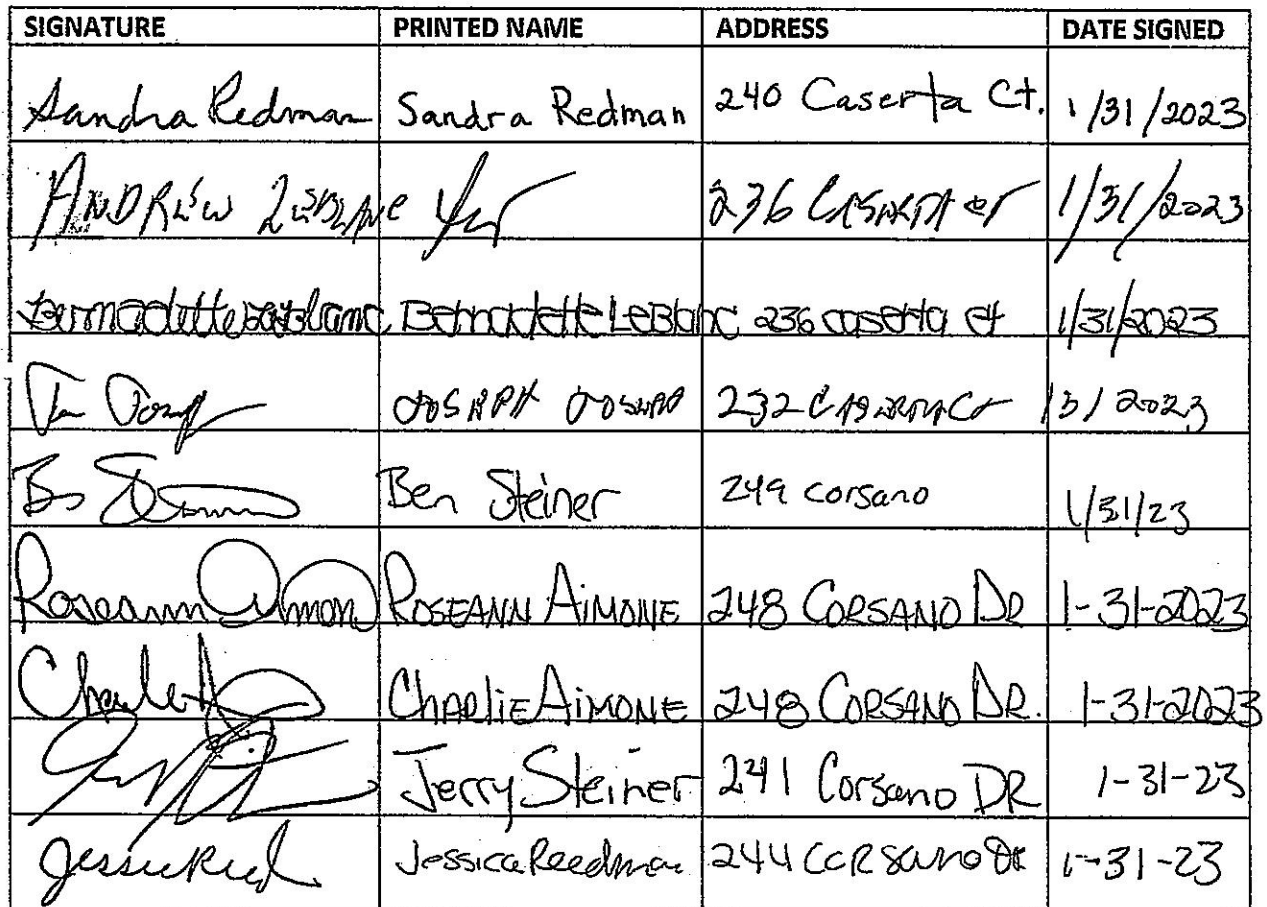 SIGNATURE PRINTED NAME ADDRESS DATE SIGNED
Sandra Redman Sandra Redman 240 Caserta Ct. 1/31/2023
ANDREW LEBLANC 236 CASERTA CT 1/31/2023
Bernadette LeBlanc Bernadette LeBlanc 236 caserta ct 1/31/2023
JOSEPH 232 CASERTA Ct 131/2023
Ben Steiner 249 corsano 1/31/23
Roseann Aimone ROSEANN AIMONE 248 CORSANO DR 1-31-2023
Charlie CHARLIE AIMONE 248 CORSANO DR. 1-31-2023
Jerry Steiner 241 Corsano DR 1-31-23
Jessica Reedman 244 CORSANO DR 1-31-23